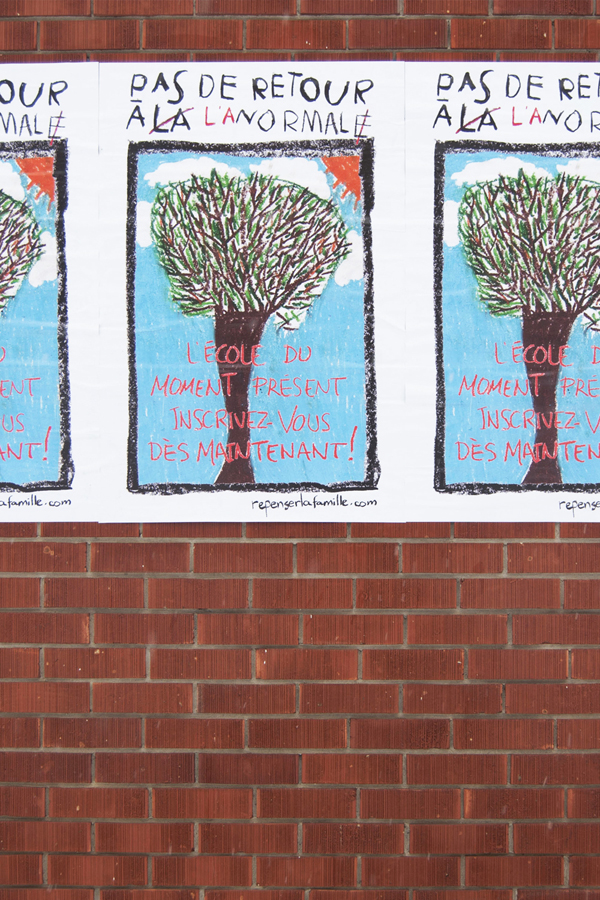 OUR
MAL
U
ENT
US
ANT!
lafamille.com
PAS DE RETOUR
À LA L'ANORMALE
L'ÉCOLE DU
MOMENT PRÉSENT
INSCRIVEZ-VOUS
DÈS MAINTENANT!
repenserlafamille.com
PAS DE RET
À LA L'ANOR
L'ÉCOLE D
MOMENT PRÉ
INSCRIVEZ-V
DÈS MAINTEN
repenser